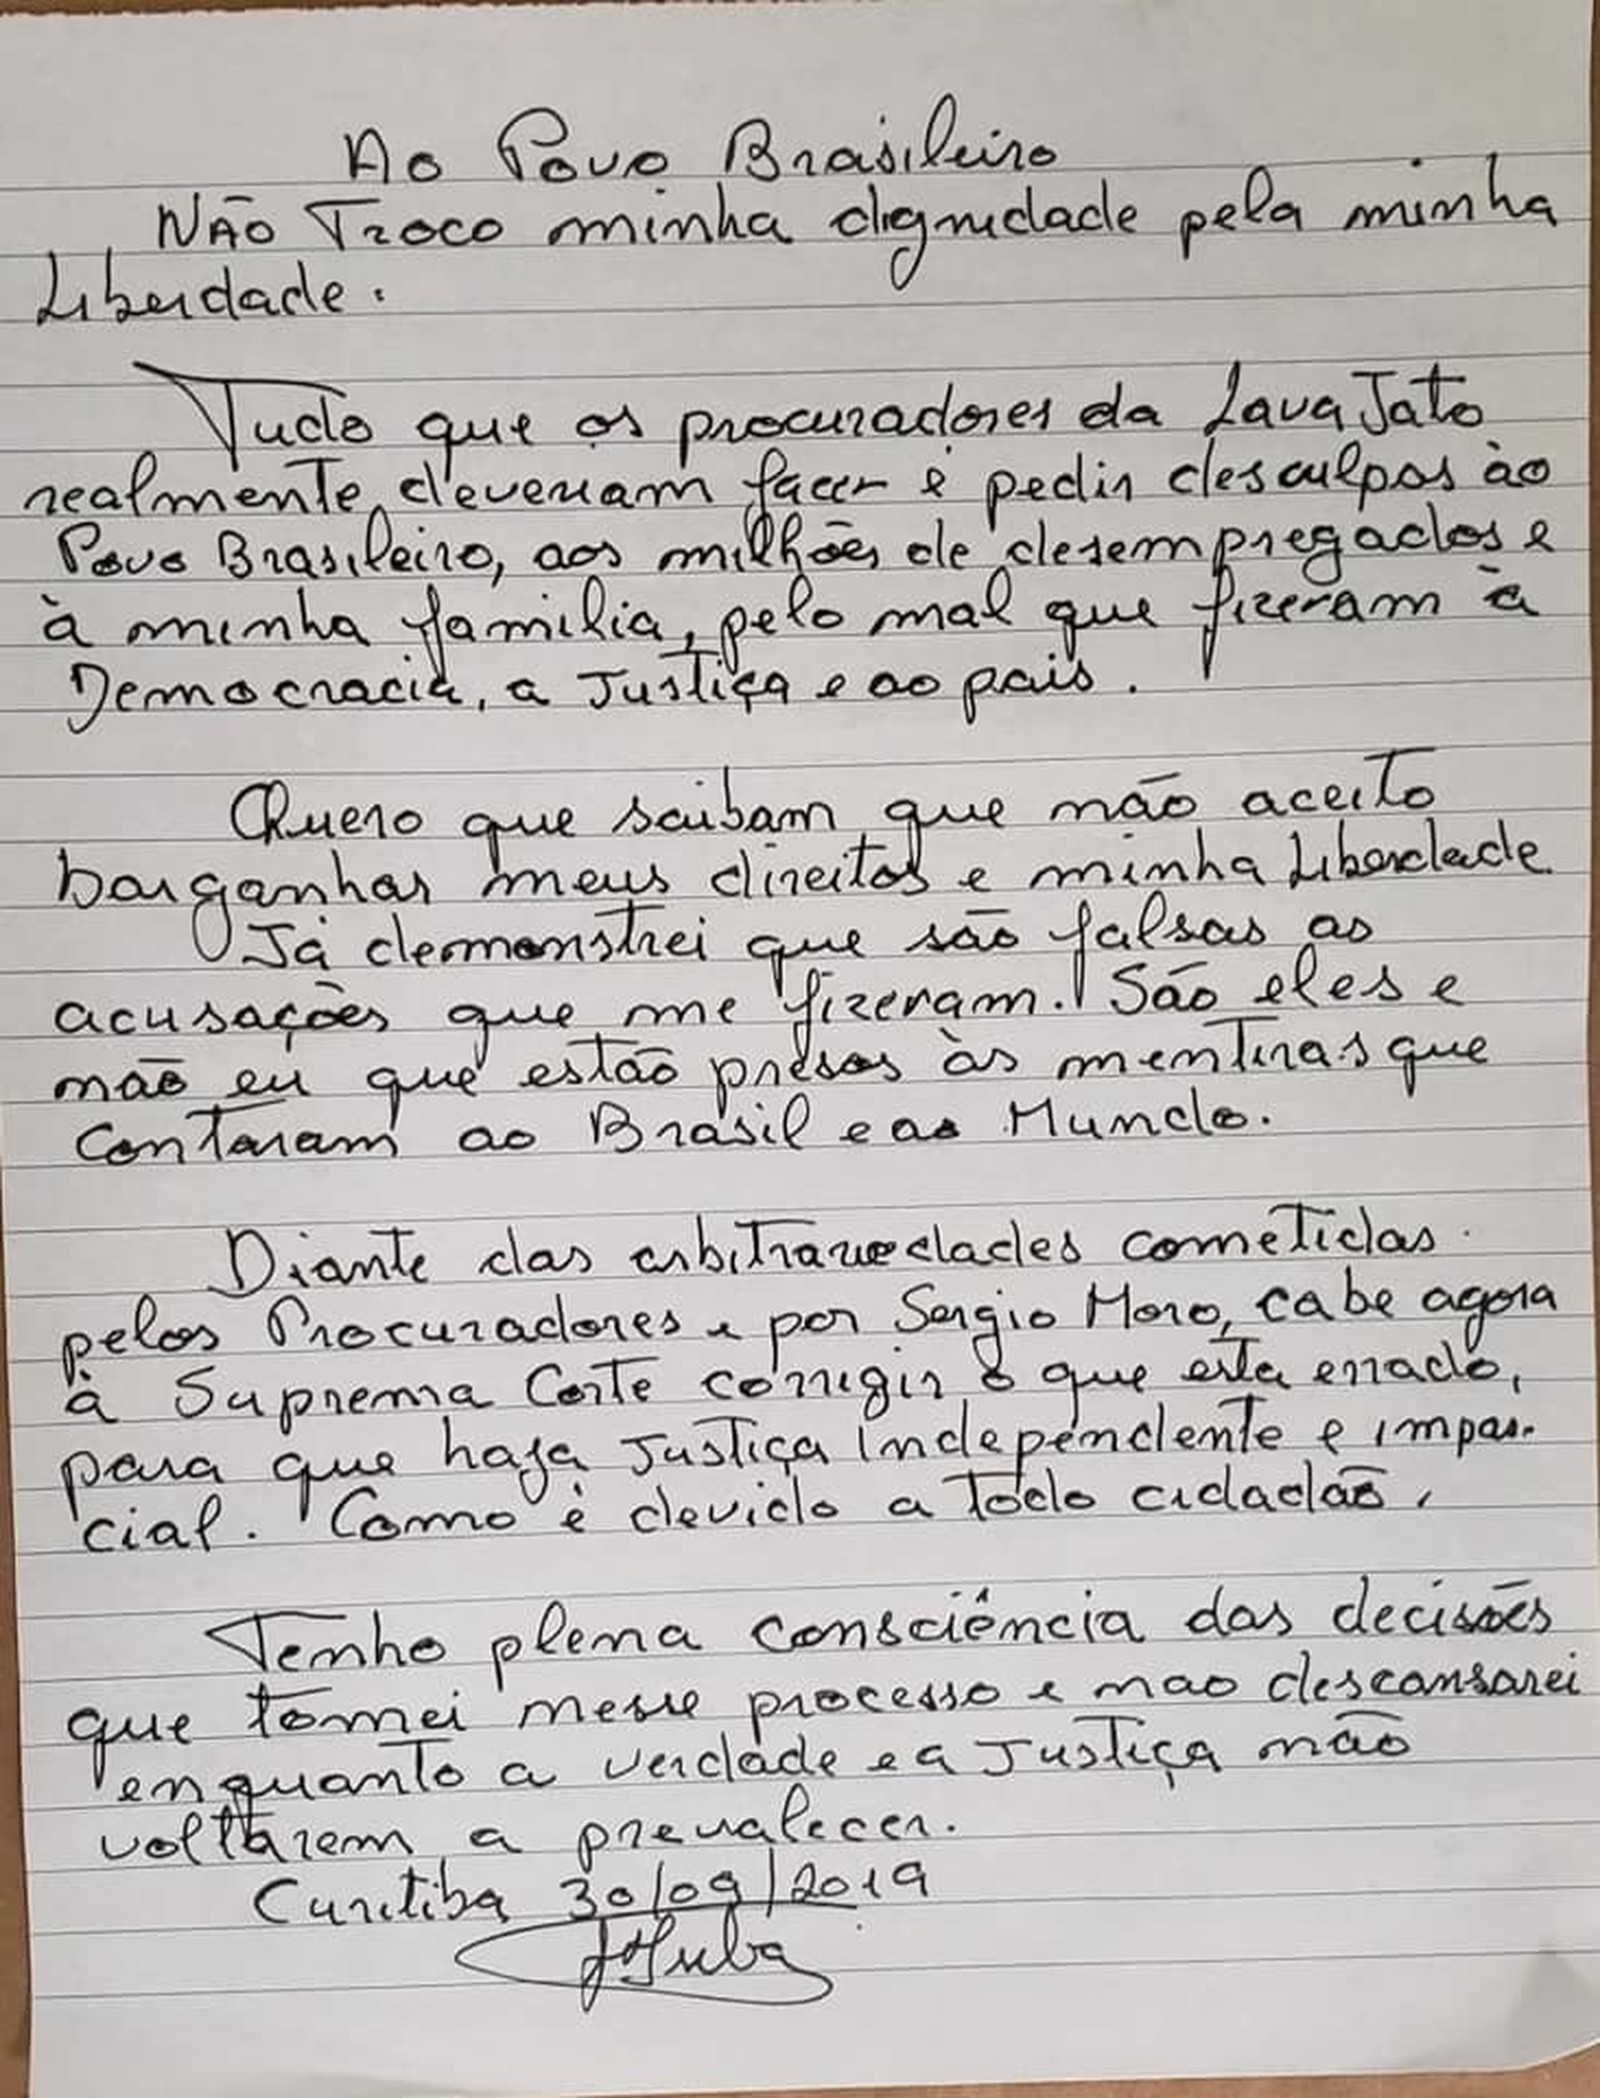 Ao Povo Brasileiro
Não Troco minha dignidade pela minha
Liberdade.
Tudo que os procuradores da Lava Jato
realmente deveriam fazer é pedir desculpas ào
Povo Brasileiro, aos milhões de desempregados e
à minha familia, pelo mal que fizeram à
Democracia, a Justiça e ao pais.
Quero que saibam que não aceito
barganhar meus direitos e minha Liberdade.
Já demonstrei que são falsas as
acusações que me fizeram. São eles e
não eu que estão presos às mentiras que
contaram ao Brasil e ao Mundo.
Diante das arbitrariedades cometidas
pelos Procuradores e por Sergio Moro, cabe agora
à Suprema Corte corrigir o que esta errado,
para que haja Justiça Independente e impar-
cial. Como é devido a todo cidadão.
Tenho plena consciência das decisões
que tomei nesse processo e nao descansarei
enquanto a verdade e a Justiça não
voltarem a prevalecer.
Curitiba 30/09/2019